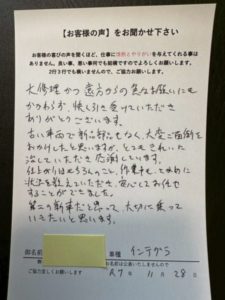 【お客様の声】をお聞かせ下さい
お客様の喜びの声を聞くほど、仕事に情熱とやりがいを与えてくれる事は
ありません。良い事、悪い事何でも結構ですのでよろしくお願いします。
2行3行でも構いませんので、ご協力お願いします。
大修理かつ遠方からの急なお願いにも
かかわらず、快く引き受けていただき
ありがとうございます。
古い車両で新品部品もなく、大変ご面倒を
おかけしたと思いますが、とてもきれいに
治していただき感謝しています。
仕上がりはもちろんのこと、作業中もこまめに
状況を教えていただき、安心してお任せ
することができました。
第二の新車だと思って、大切に乗って
いきたいと思います。
御名前
車種 インテグラ
お名前は公表いたしませんので
ご協力宜しくお願いします
R7年 11月 28日